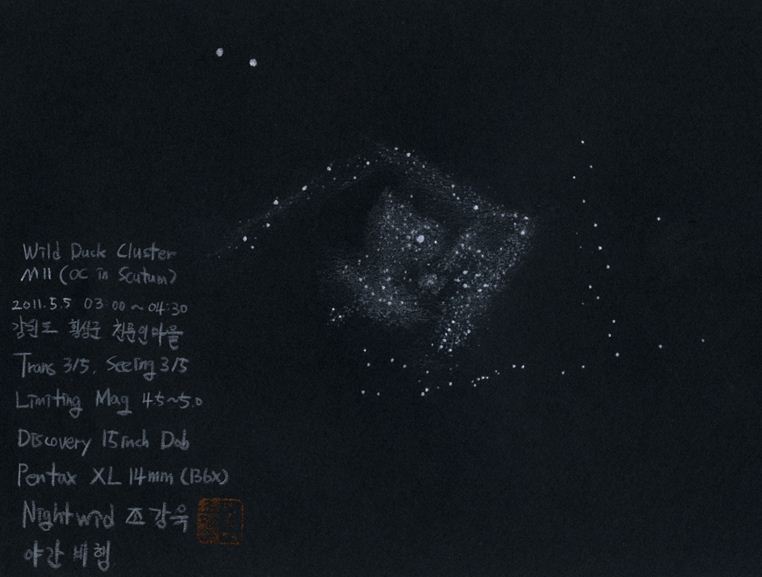 Wild Duck Cluster
M11 (OC in Scutum)
2011.5.5 03:00 ~ 04:30
강원도 횡성군 천문인마을
Trans 3/5, Seeing 3/5
Limiting Mag 4.5~5.0
Discovery 15inch Dob
Pentax XL 14mm (136x)
Nightwid 조강욱
야간비행